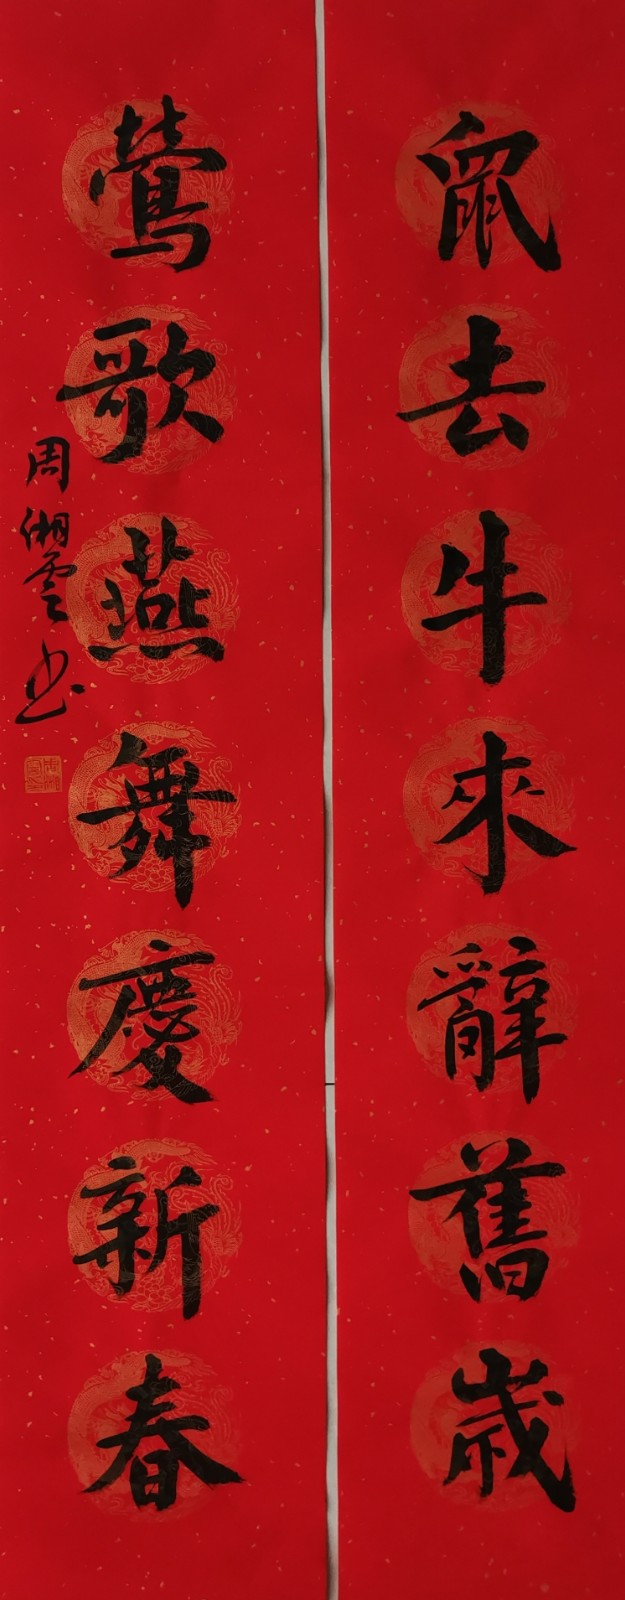 鼠去牛來辭舊歲
鶯歌燕舞慶新春
周湘雲书